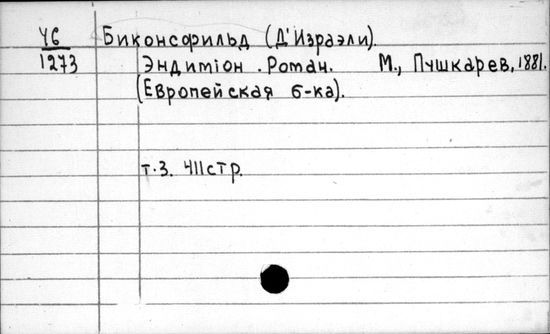 Ч6 Биконсфильд (Д'Израэли).
1273 Эндиміон. Роман. М., Пушкарев, 1881.
(Европейская б-ка).
т.3. 411 стр.